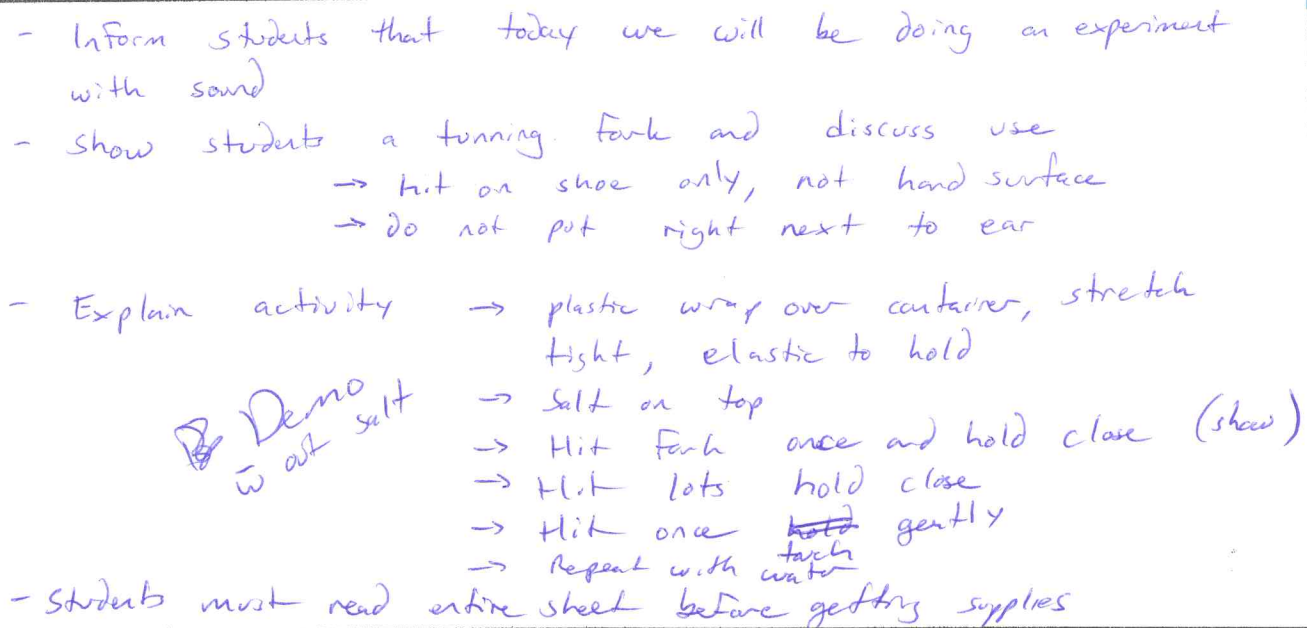 - Inform students that today we will be doing an experiment
with sound
- Show students a tunning fork and discuss use
→ hit on shoe only, not hard surface
→ do not put right next to ear
- Explain activity → plastic wrap over container, stretch
tight, elastic to hold
Demo
w̄ out salt
→ Salt on top
→ Hit Fork once and hold close (show)
→ Hit lots hold close
→ Hit once hold gently
touch
→ Repeat with water
- Students must read entire sheet before getting supplies